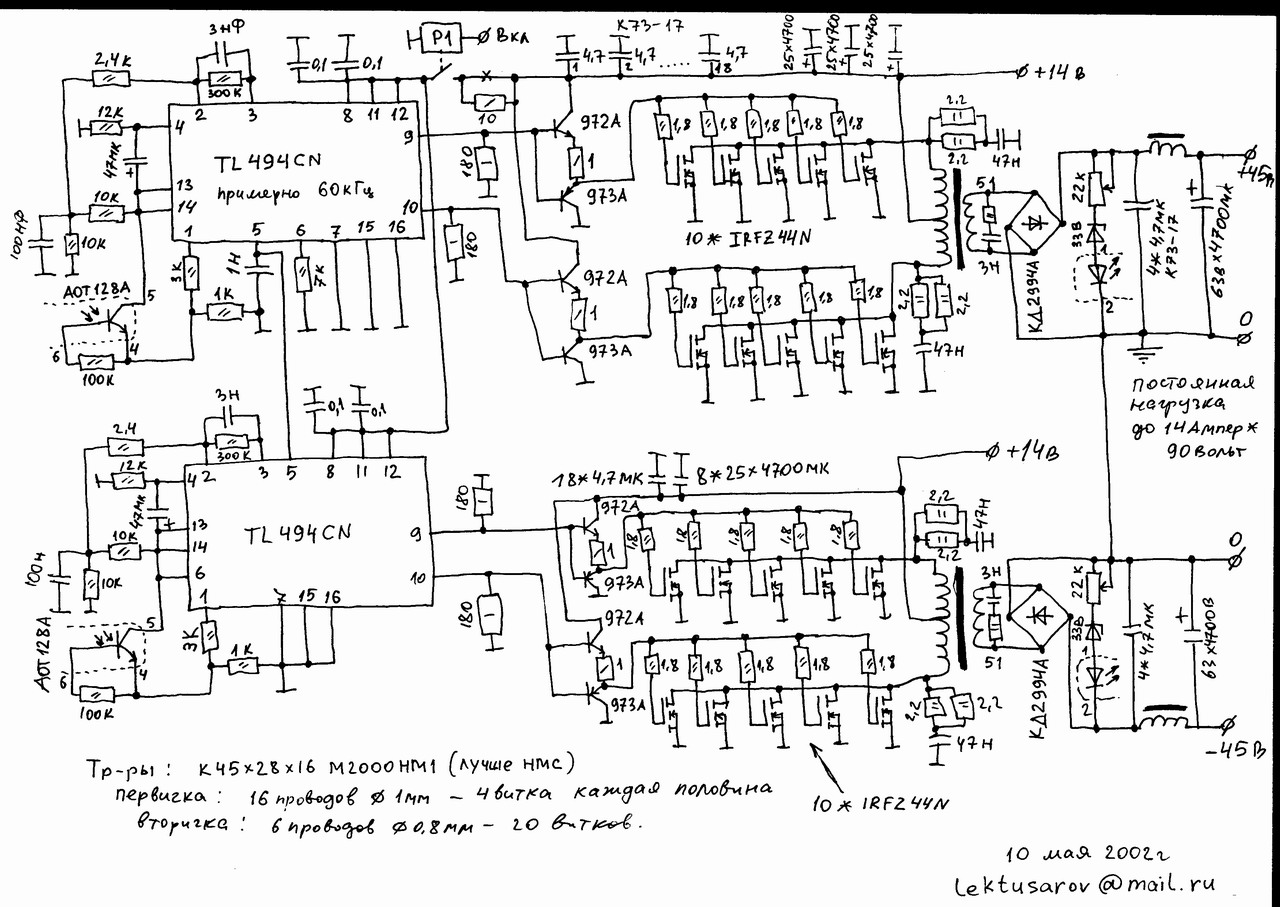 3нФ
2,4к
300К
0,1
0,1
Р1
Вкл
К73-17
4,7
1
4,7
2
.....
4,7
18
25x4700
25x4700
25x4700
+14 В
2 3 8 11 12
12К
4
47МК
+
TL494CN
примерно 60кГц
13
10К
14
100НФ
10К
1 5 6 7 15 16
9
10
10
180
180
972А
1
973А
1,8 1,8 1,8 1,8 1,8
10* IRFZ44N
972А
1
973А
1,8 1,8 1,8 1,8 1,8
2,2
2,2
47Н
2,2
2,2
47Н
51
3Н
КД2994А
22К
33В
1
2
4*4,7МК
К73-17
+
63В x4700МК
+45В
0
3К
1Н
7К
1К
АОТ128А
5
4
6
100К
постоянная
нагрузка
до 14Ампер*
90вольт
3Н
2,4
300К
0,1
0,1
12К
4
2 3 5 8 11 12
47МК
+
13
10К
14
6
TL494CN
100Н
10К
1 7 15 16
9
10
180
180
18*4,7МК
8*25x4700МК
+14В
972А
1
973А
1,8 1,8 1,8 1,8 1,8
972А
1
973А
1,8 1,8 1,8 1,8 1,8
2,2
2,2
47Н
2,2
2,2
47Н
3Н
51
КД2994А
22К
33В
1
2
4*4,7МК
+
63x4700В
0
-45В
АОТ128А
5
4
6
3К
1К
100К
10* IRFZ44N
Тр-ры: К45x28x16 М2000НМ1 (лучше НМС)
первичка: 16 проводов Ø 1мм – 4 витка каждая половина
вторичка: 6 проводов Ø0,8мм – 20 витков.
10 мая 2002г
lektusarov@mail.ru